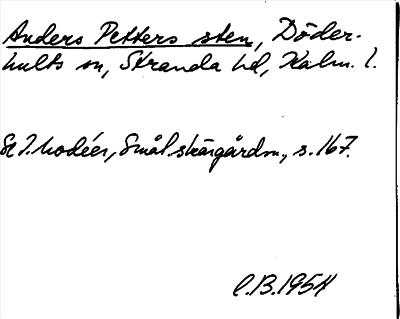 Anders Petters sten, Döder-
hults sn, Stranda hd, Kalm. l.
Se I. Modéer, Smål. skärgårdsn., s. 167.
C.B. 1954